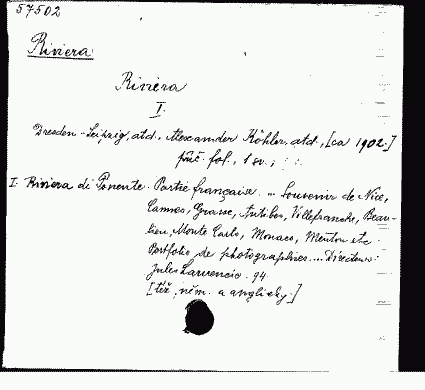 57502
Riviera
Riviera
I.
Dresden - Leipzig, atd., Alexander Köhler, atd., [ca 1902.]
příč. fol., 1 sv.;
I. Riviera di Ponente. Partie française. ... Souvenir de Nice,
Cannes, Grasse, Antibes, Villefranche, Beau-
lieu, Monte Carlo, Monaco, Menton etc.
Portfolio de photographies .... Directeur:
Jules
[též něm. a anglicky.]